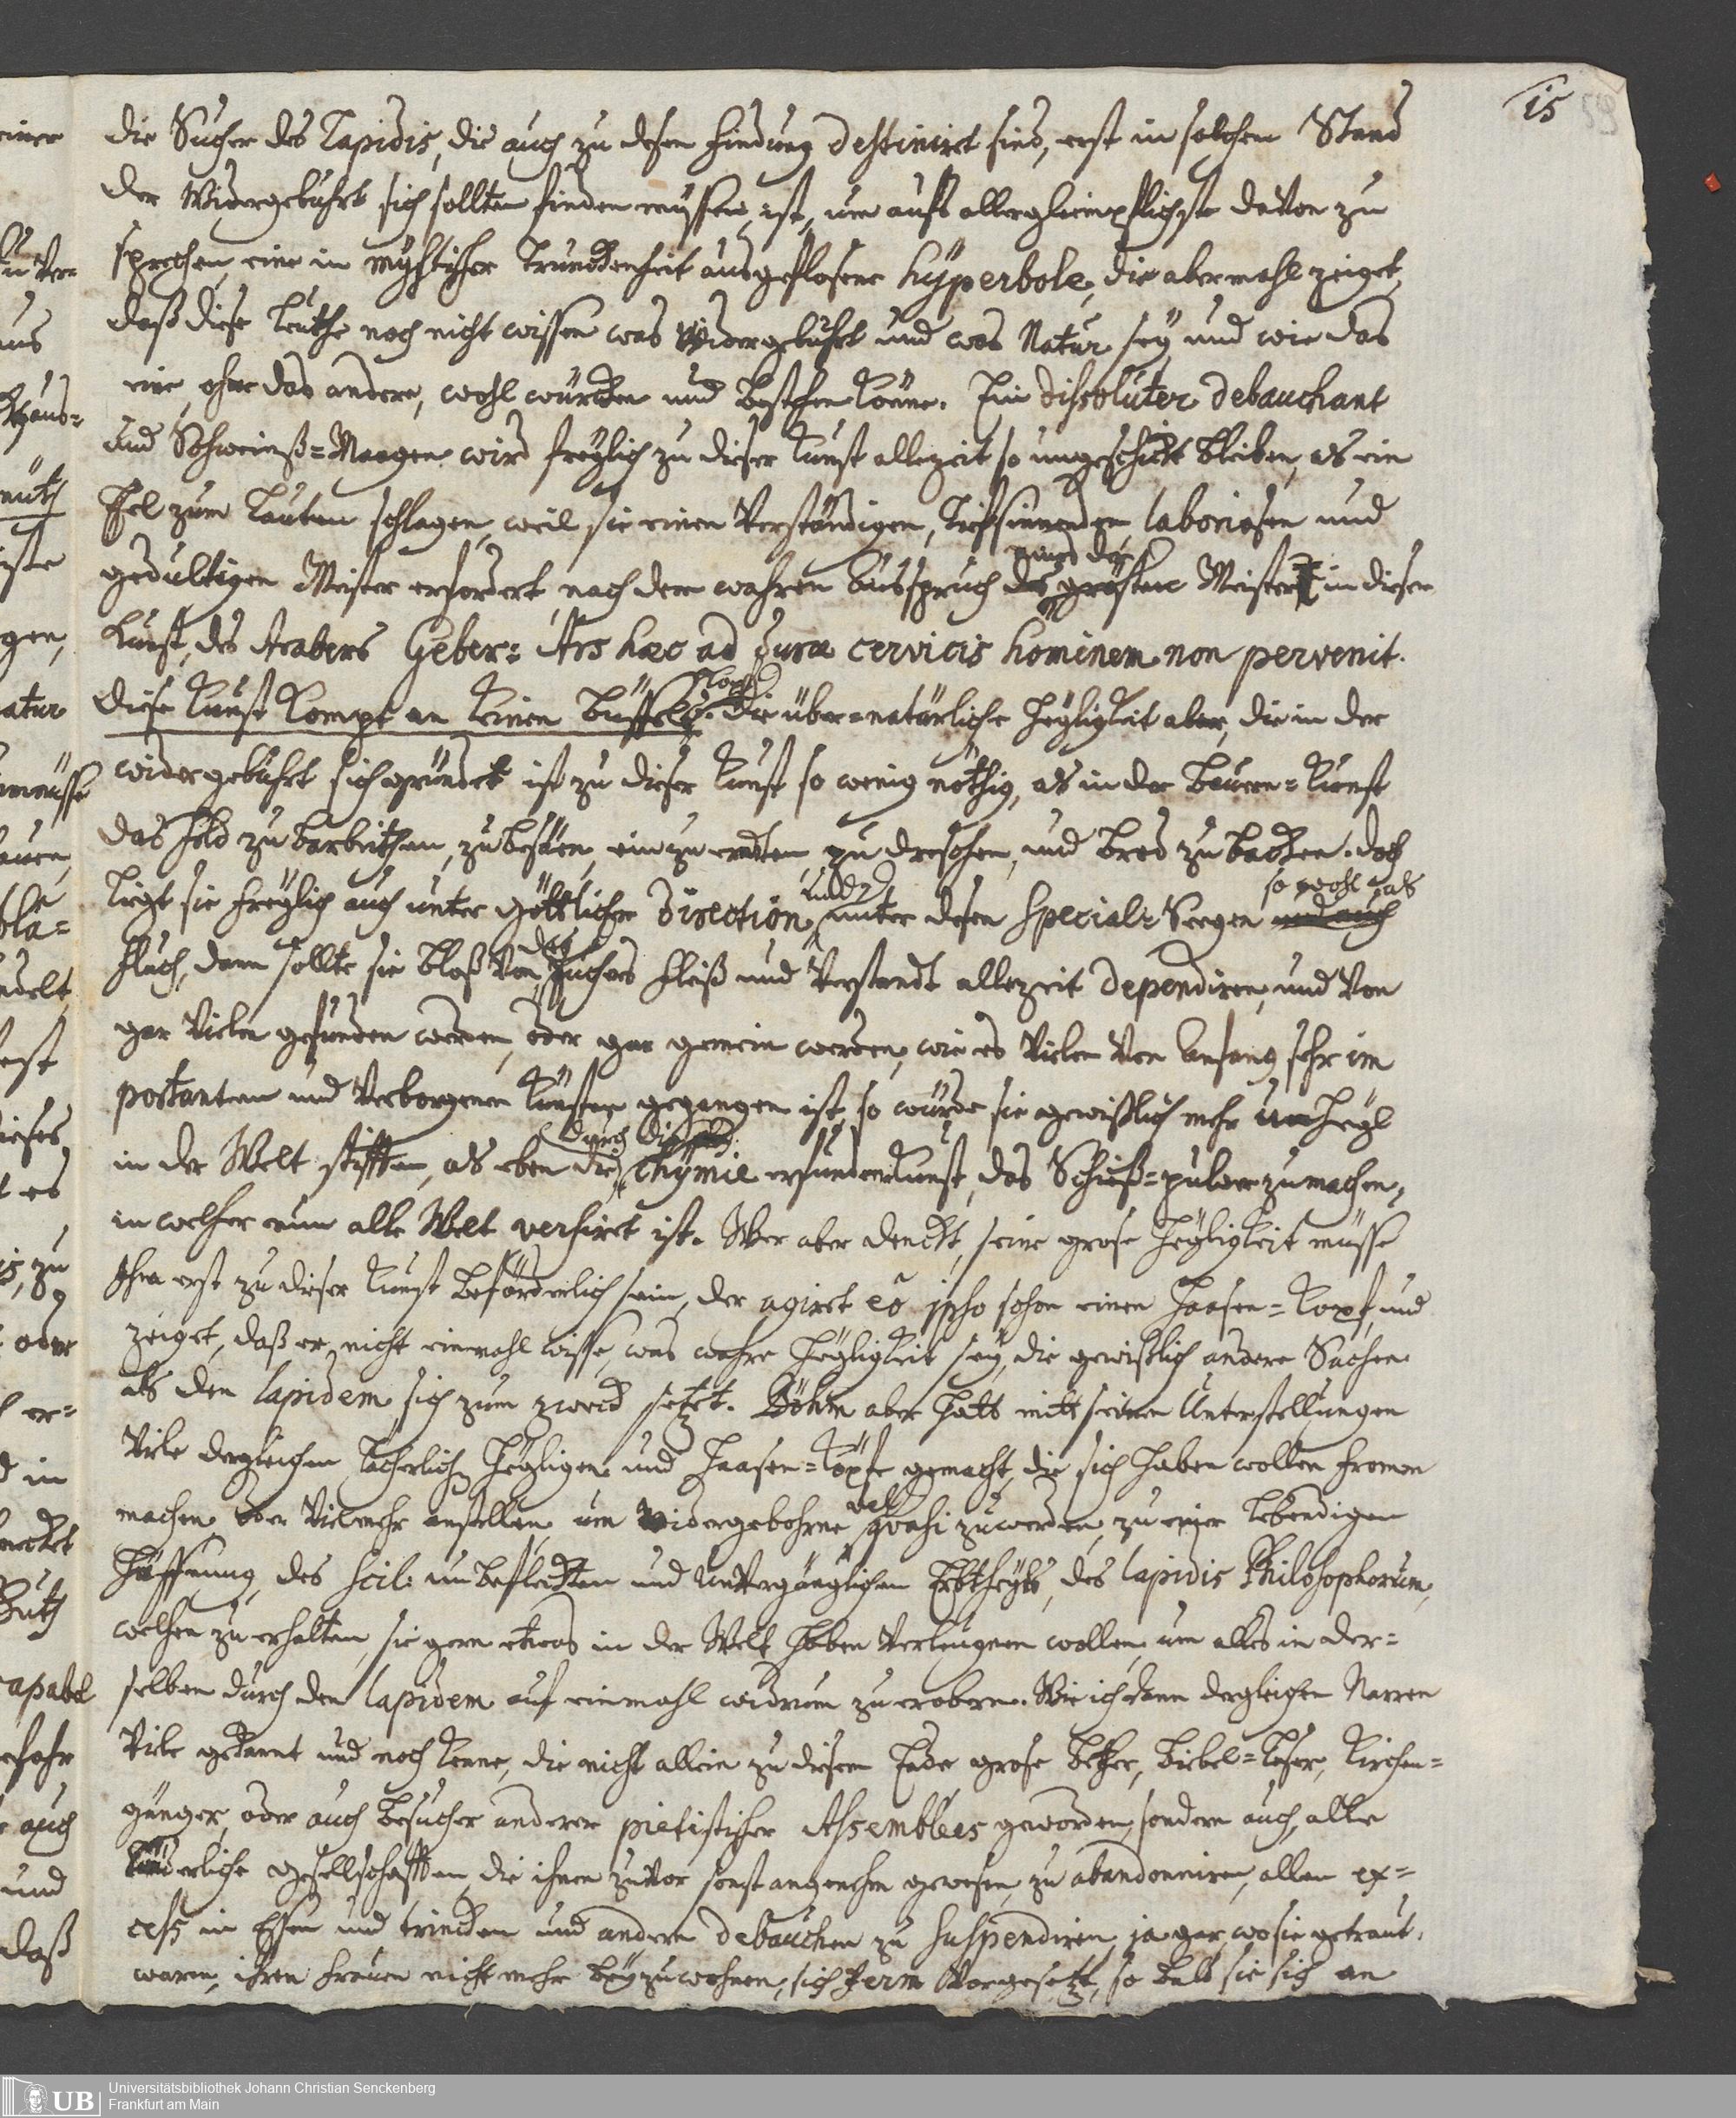 15
59
die Sucher des Lapidis, die auch zu desen findung destiniret sind, erst in solchen Stand
der Widergebuhrt sich sollten finden müssen, ist, um aufs allerglimpflichste davon zu
sprechen, eine in mystischer Trunckenheit ausgeflosene hÿperbole, die abermahl zeiget,
daß diese Leuthe noch nicht wissen was Widergebuhrt und was Natur seÿ und wie das
eine, ohne das andere, wohl würcken und bestehen könne. Ein dissoluter debauchant
und Schweinß-Magen wird freÿlich zu dieser Kunst allezeit so ungeschickt bleiben, als ein
Esel zum Lauten schlagen, weil sie einen Verständigen, tiefsinnenden, laboriosen und
gedultigen Meister erfordert, nach dem wahren Ausspruch des grösten Meisters in dieser
Kunst, des Arabers Geber: Ars hæc ad duræ cervicis hominem non pervenit.
Diese Kunst kompt an keinen Büffelskopf. Die über-natürliche Heÿligkeit aber, die in der
widergebuhrt sich gründet ist zu dieser Kunst so wenig nöthig, als in der Bauern-Kunst
das Feld zu bearbeithen, zu besäen, einzuerndten, zu dreschen, und Brod zu backen. doch
ligt sie freÿlich auch unter göttlicher Direction, und unter desen Special-Seegen so wohl als
fluch, dann sollte sie bloß von des suchers fleiß und Verstandt allezeit dependiren, und von
gar vielen gefunden werden, oder gar gemein werden, wie es vielen von Anfang sehr im
portanten und verborgenen Künsten gegangen ist, so würde sie gewißlich mehr unheÿl
in der Welt stifften, als eben die durch die chÿmie erfundene kunst, das Schieß-pulver zu machen,
in welcher nun alle Welt versiret ist. Wer aber denckt, seine grose Heÿligkeit müsse
ihm erst zu dieser Kunst beförderlich sein, der agiret eô ipso schon einen Haasen-Kopf, und
zeiget, daß er nicht einmahl wisse, was wahre Heÿligkeit seÿ, die gewißlich andere Sachen
als den lapidem sich zum zweck setzet. Böhm aber hatt mitt seinen Unterstellungen
viele dergleichen lächerliche Heÿligen und Haasen-Köpfe gemacht, die sich haben wollen fromm
machen oder vielmehr anstellen, um Widergebohrne vel quasi zu werden, zu einer lebendigen
Hoffnung, des scil: unbefleckten und Unvergänglichen Erbtheÿls, des lapidis Philosophorum,
welchen zu erhalten, sie gern etwas in der Welt haben verleugnen wollen, um alles in der-
selben durch den lapidem auf einmahl widerum zu erobern. Wie ich dann dergleichen Narren
viele gekannt und noch kenne, die nicht allein zu diesem Ende grose Better, Biebel-Leser, Kirchen-
gänger, oder auch Besucher anderer pietistischer Assemblees geworden, sondern auch, alle
Liederliche gesellschafften, die ihnen zuvor sonst angenehm gewesen, zu abandonniren, allen ex-
cess in Essen und trincken und andern debauchen zu suspendiren, ja gar, wo sie getraut
waren, ihren frauen nicht mehr beÿzuwohnen, sich ferm vorgesetzt, so bald sie sich an
Universitätsbibliothek Johann Christian Senckenberg
UB Frankfurt am Main